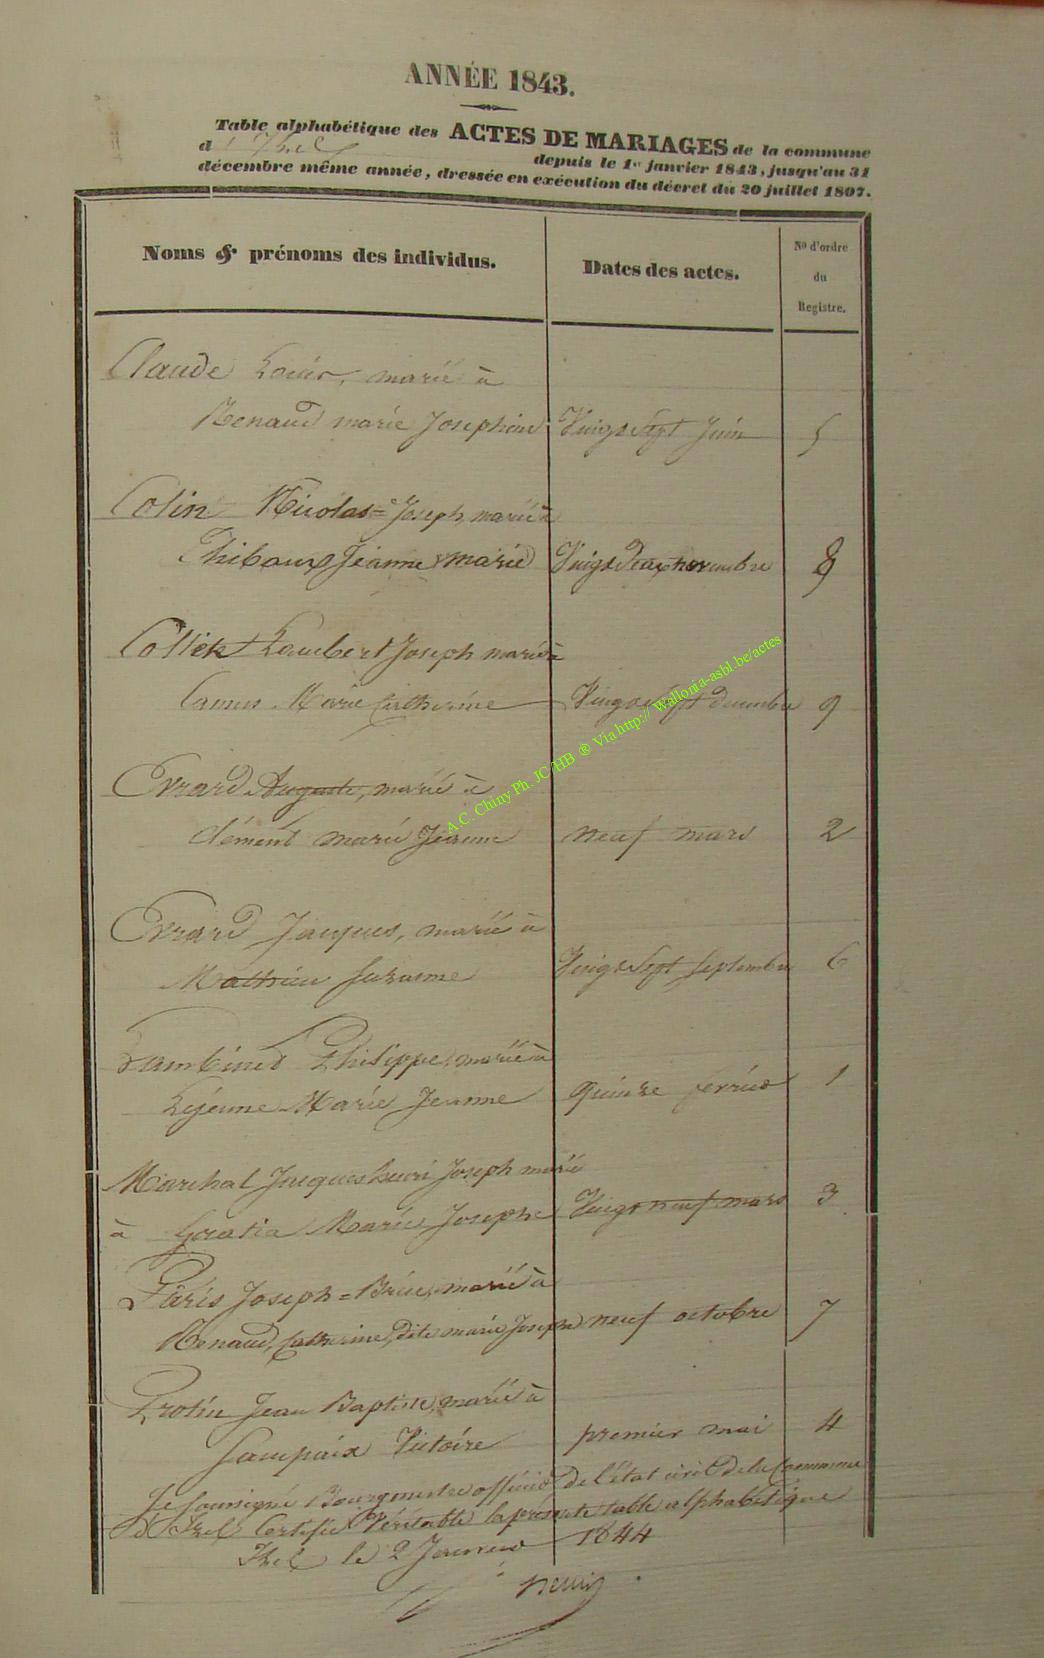 ANNÉE 1843.
Table alphabétique des ACTES DE MARIAGES de la commune
d' Izel depuis le 1er janvier 1843, jusqu'au 31
décembre même année, dressée en exécution du décret du 20 juillet 1807.
Noms & prénoms des individus. Dates des actes. No d'ordre du Registre.
Claude Louis, marié à
Renaud marie Josephine Vingt Sept Juin 5
Colin Nicolas=Joseph, marié à
Thibaux Jeanne marie Vingt Deux novembre 8
Collet Lambert Joseph marié à
Camus Marie Catherine Vingt Sept decembre 9
Evrard Auguste, marié à
Clément marie Jeanne neuf mars 2
Evrard Jacques, marié à
Mathieu Suzanne Vingt Sept Septembre 6
Lambinet Philippe, marié à
Lejeune Marie Jeanne quinze fevrier 1
Marchal Jacques henri Joseph marié
à Goratia Marie Josephe Vingt neuf mars 3
Pâris Joseph=Brice, marié à
Renaud, Catherine, dite marie Joseph neuf octobre 7
Protin Jean Baptiste, marié à
Saupaix Victoire premier mai 4
Je Soussigné Bourgmestre officier de l'état civil de la Commune
d'Izel Certifie Véritable la présente table alphabétique
Izel le 2 Janvier 1844
A.C. Chiny Ph. JC HB ® Via http:// Wallonia-asbl.be/actes